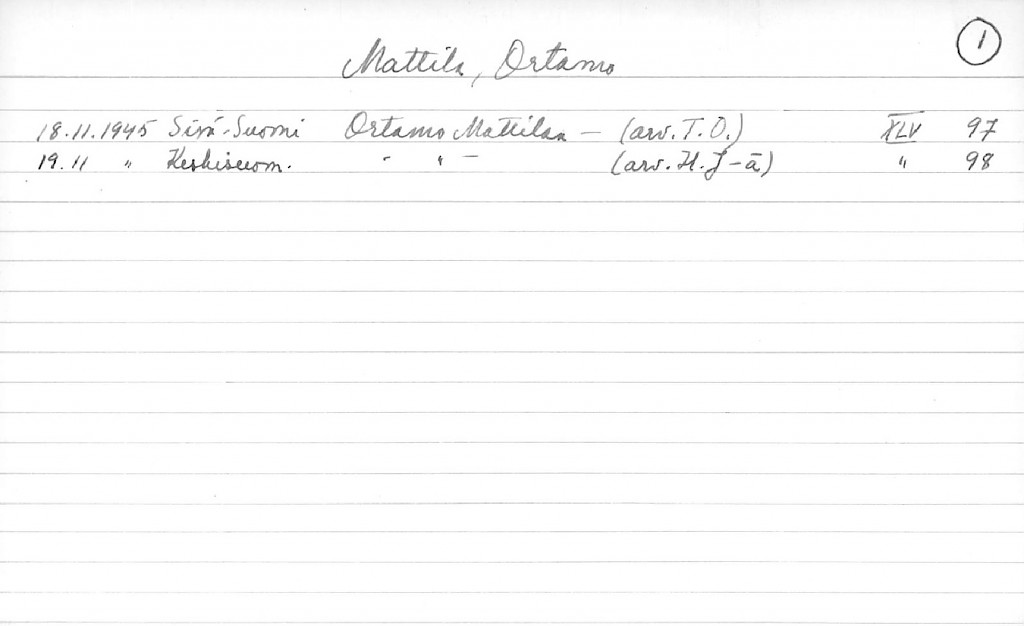 1
Mattila, Ortamo
18.11.1945 Sisä-Suomi Ortamo Mattilan — (arv. T.O.) XLV 97
19.11 " Keskisuom. - " — (arv. H. J-ä) " 98